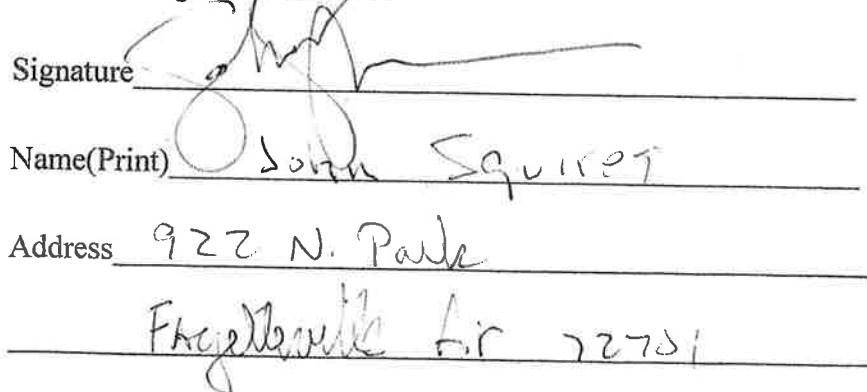 Signature
Name(Print) John Squires
Address 922 N. Park
Fayetteville Ar 72701